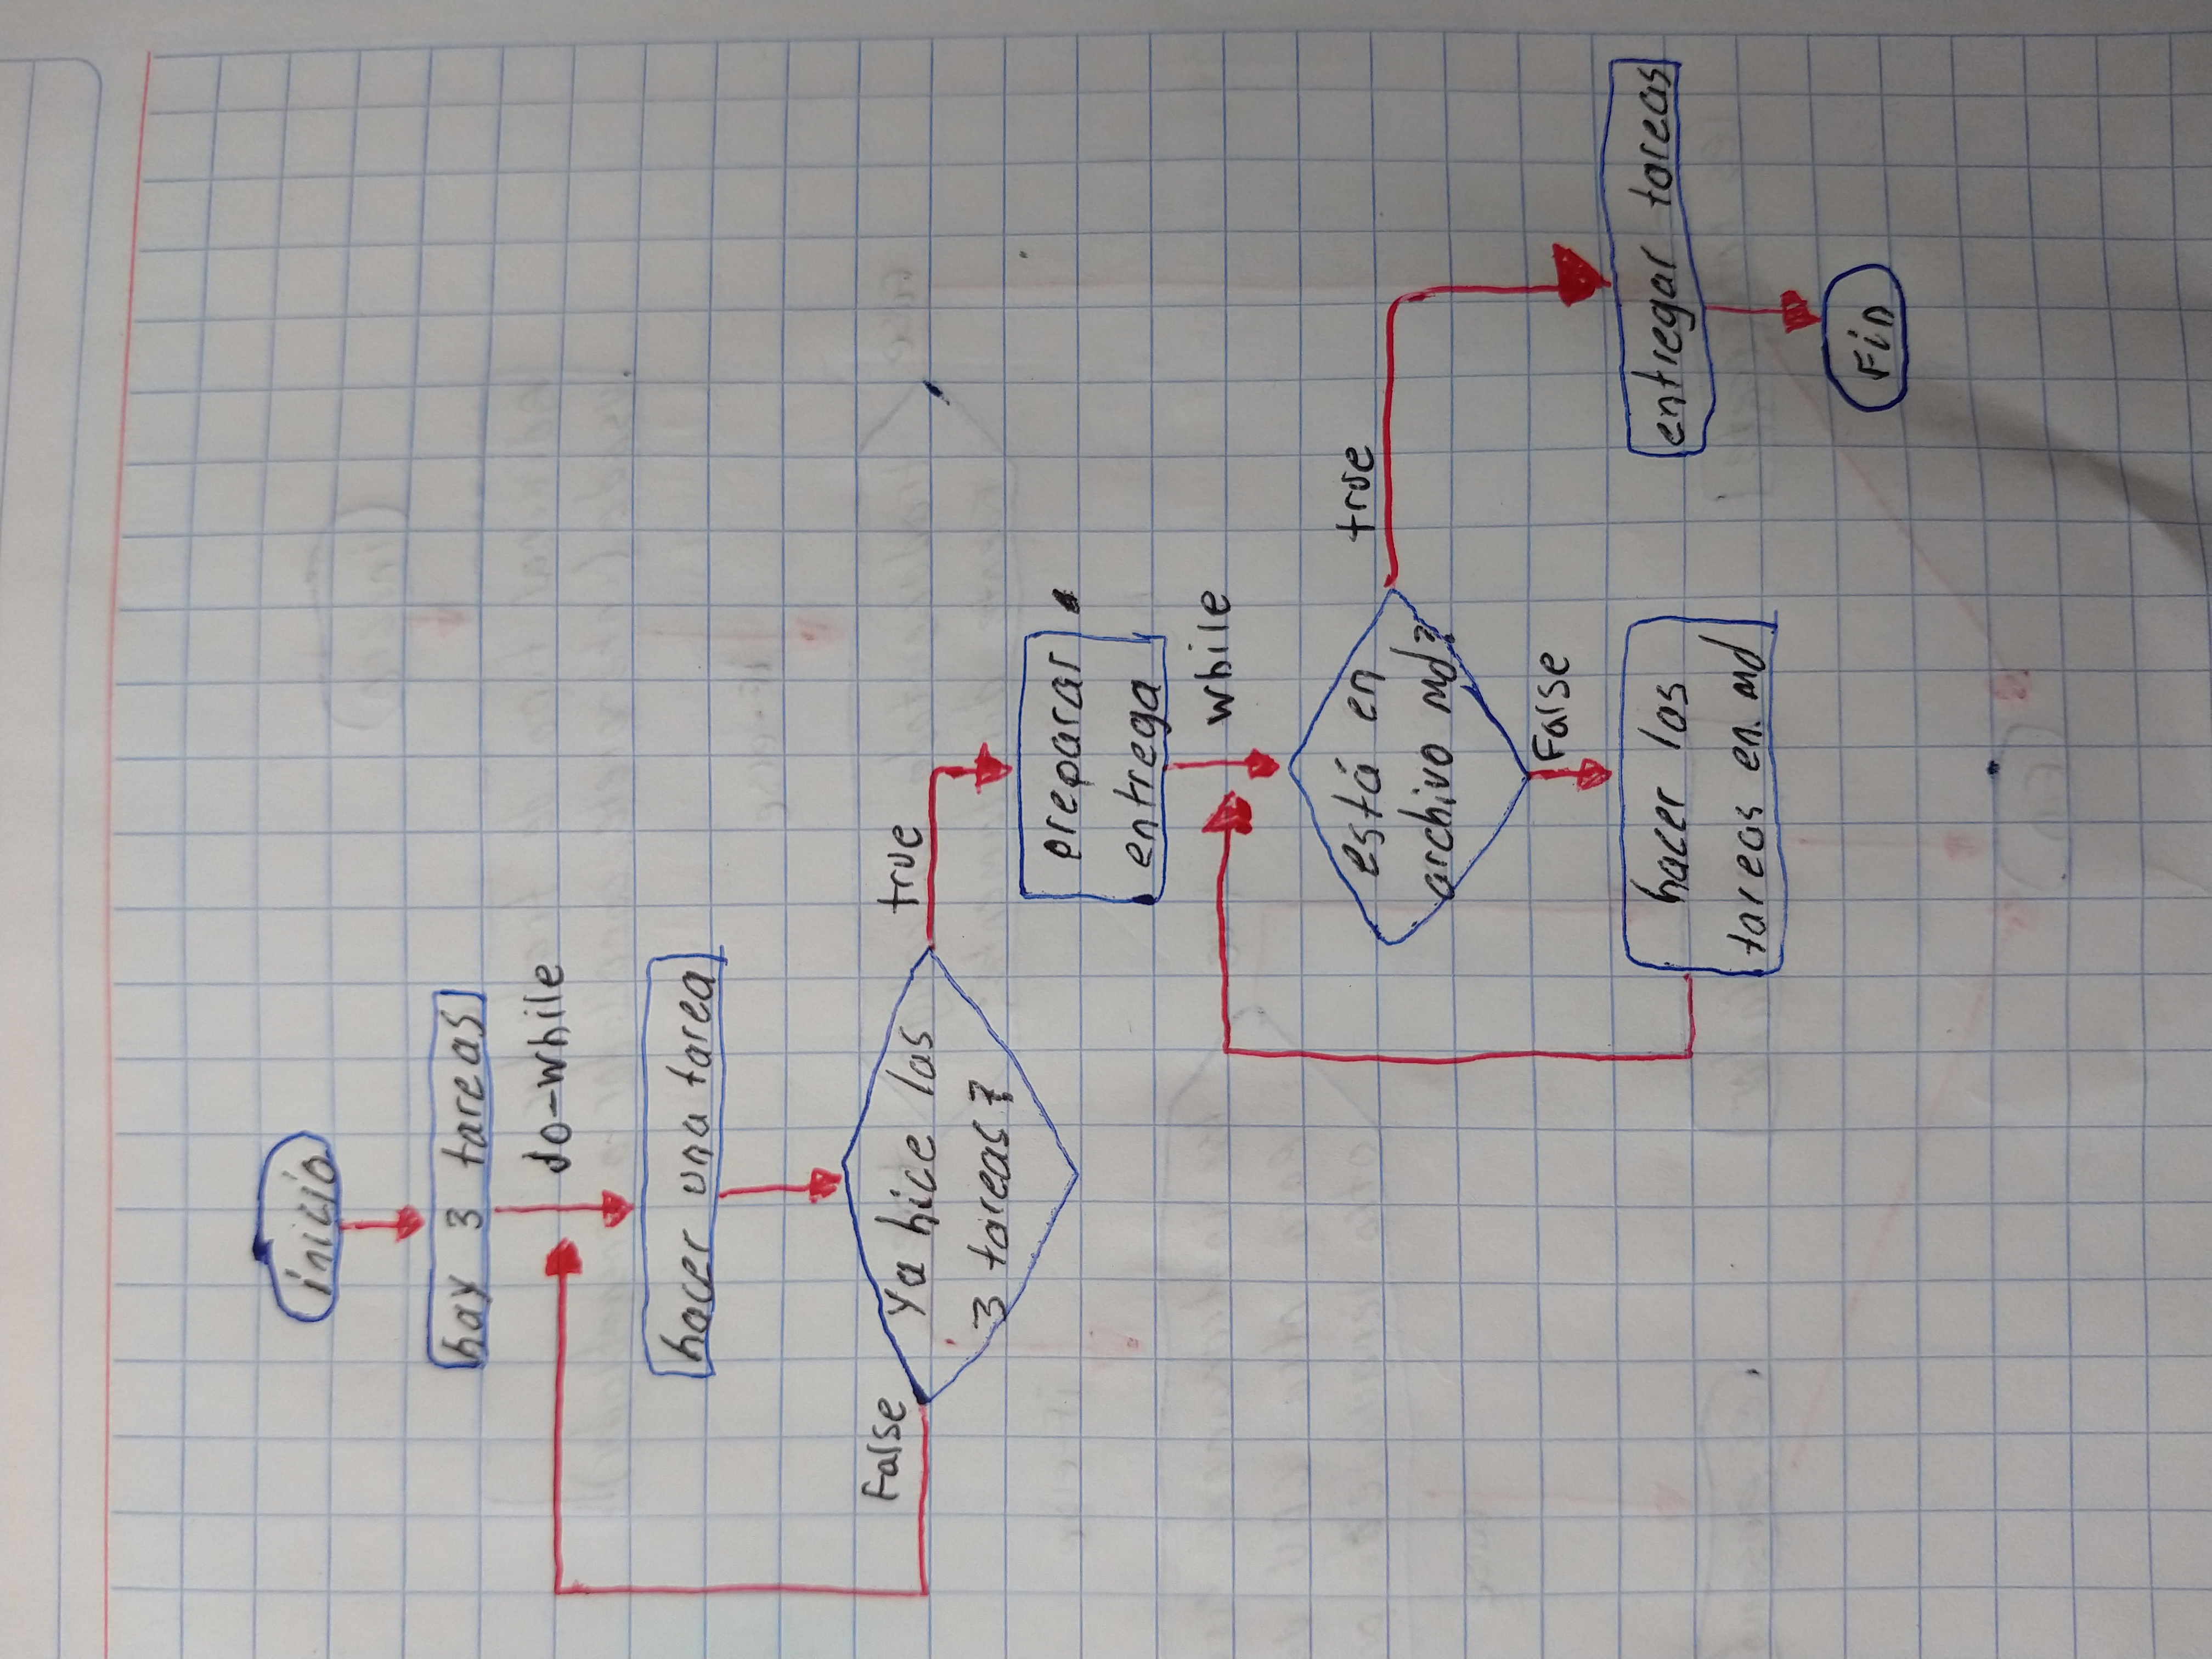 inicio
hay 3 tareas
do-while
hacer una tarea
False
Ya hice las
3 tareas?
true
preparar
entrega
while
está en
archivo md?
true
False
hacer las
tareas en. md
entregar tareas
Fin